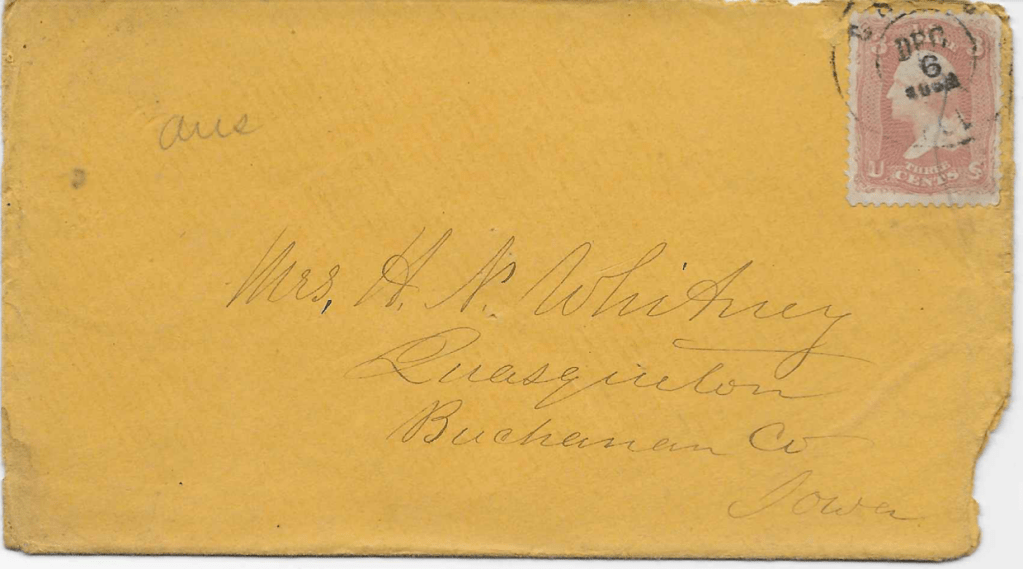 DEC.
6
U THREE S
CENTS
ans
Mrs, H. N. Whitney
Quasqueton
Buchanan Co
Iowa